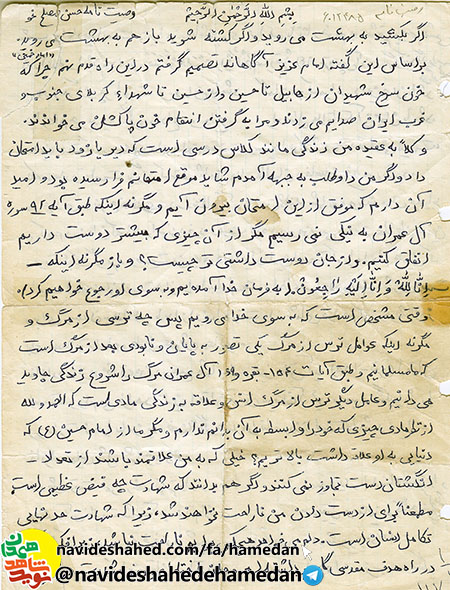 بسم الله الرحمن الرحیم
وصیت نامه حسن
اگر بکشید به بهشت می روید و اگر کشته شوید باز هم به بهشت می روید
براساس این گفته امام عزیز آگاهانه تصمیم گرفتم در این راه قدم نهم چرا که
خون سرخ شهیدان از هابیل تا حسین و از حسین تا شهداء کربلای جنوب و
غرب ایران صدایم می زدند و مرا به گرفتن انتقام خون پاکشان می خواندند.
و کلاً به عقیده من زندگی مانند کلاس درسی است که دیر یا زود باید امتحان
داد و اگر من داوطلب به جبهه آمدم شاید موقع امتحانم فرا رسیده بود و امید
آن دارم که موفق از این امتحان بیرون آیم و مگر نه اینکه طبق آیه ۹۲ سوره
آل عمران به نیکی نمی رسیم مگر از آن چیزی که بیشتر دوست داریم
انفاق کنیم. و از جان دوست داشتنی تر چیست؟ و باز مگر نه اینکه -
انا لله و انا الیه راجعون. (به فرمان خدا آمده ایم و به سوی او رجوع خواهیم کرد).
وقتی مشخص است که به سوی خدا می رویم پس چه ترسی از مرگ و
مگر نه اینکه عوامل ترس از مرگ یکی تصور به پایان و نابودی بعد از مرگ است
که ما مسلمانیم و طبق آیات بقره و آل عمران مرگ را شروع زندگی جاوید
می دانیم و عامل دیگر ترس از مرگ و علاقه به زندگی مادی است که الحمد و لله
از نظر مادی چیزی که خود را وابسته به آن بدانم ندارم و مگر ما از امام حسین (ع) که
دنیایی به او علاقه داشت بالاتریم؟ خیلی که به من علاقمند باشند از تعداد -
انگشتان دست تجاوز نمی کنند و اگر هم بدانند که شهادت چه فیض عظیمی است
مطمئناً برای از دست دادن من ناراحت نخواهند شد، زیرا که شهادت حد نهایی
تکامل انسان است.
در راه هدف مقدسی
نوید شاهد همدان
navideshahed.com/fa/hamedan
@navideshahedehamedan